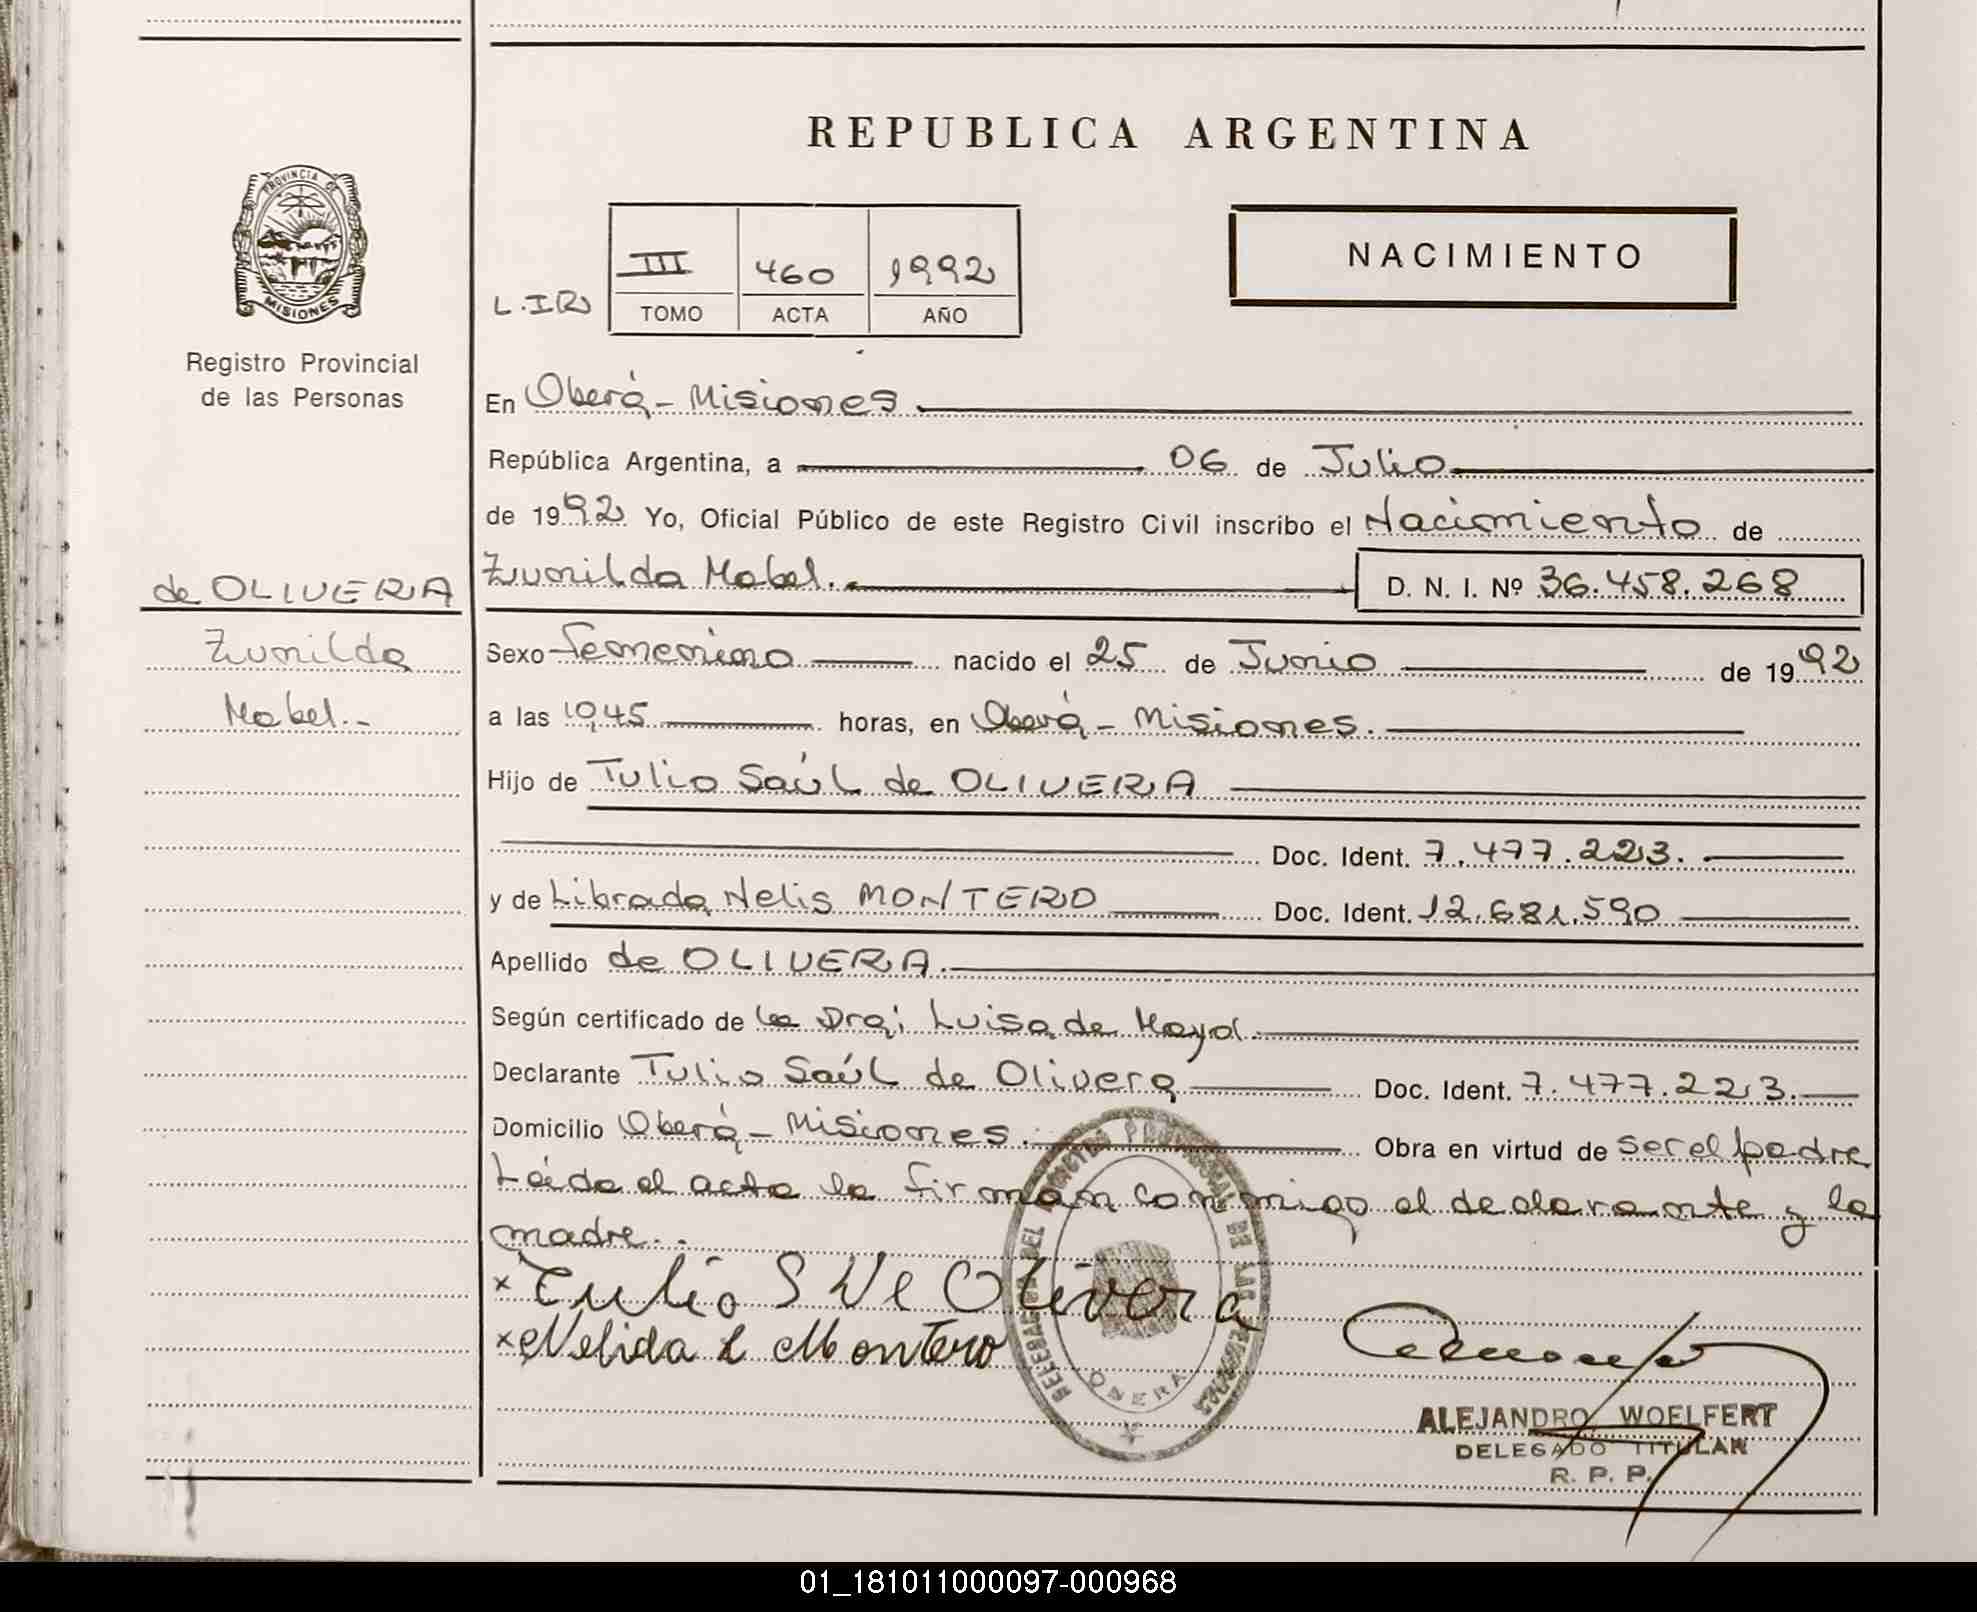 REPUBLICA ARGENTINA
PROVINCIA DE
MISIONES
Registro Provincial
de las Personas
NACIMIENTO
L.IR
III 460 1992
TOMO ACTA AÑO
En Oberá - Misiones.
República Argentina, a 06 de Julio
de 1992 Yo, Oficial Público de este Registro Civil inscribo el Nacimiento de
Zunilda Mabel. D. N. I. Nº 36.458.268
de OLIVERA
Zunilda
Mabel.-
Sexo Femenino nacido el 25 de Junio de 1992
a las 10,45 horas, en Oberá - Misiones.
Hijo de Tulio Saúl de OLIVERA
Doc. Ident. 7.477.223.
y de Librada Nelis MONTERO Doc. Ident. 12.681.590
Apellido de OLIVERA.
Según certificado de la Dra; Luisa de Mayol.
Declarante Tulio Saúl de Olivera Doc. Ident. 7.477.223.
Domicilio Oberá - Misiones. Obra en virtud de ser el padre
Leída el acta la firman conmigo el declarante y la
madre..
x Tulio S De Olivera
x Nelida L Montero
DEL REGISTRO PROVINCIAL DE LAS PERSONAS
ALEJANDRO WOELFERT
DELEGADO TITULAR
R. P. P.
01_181011000097-000968